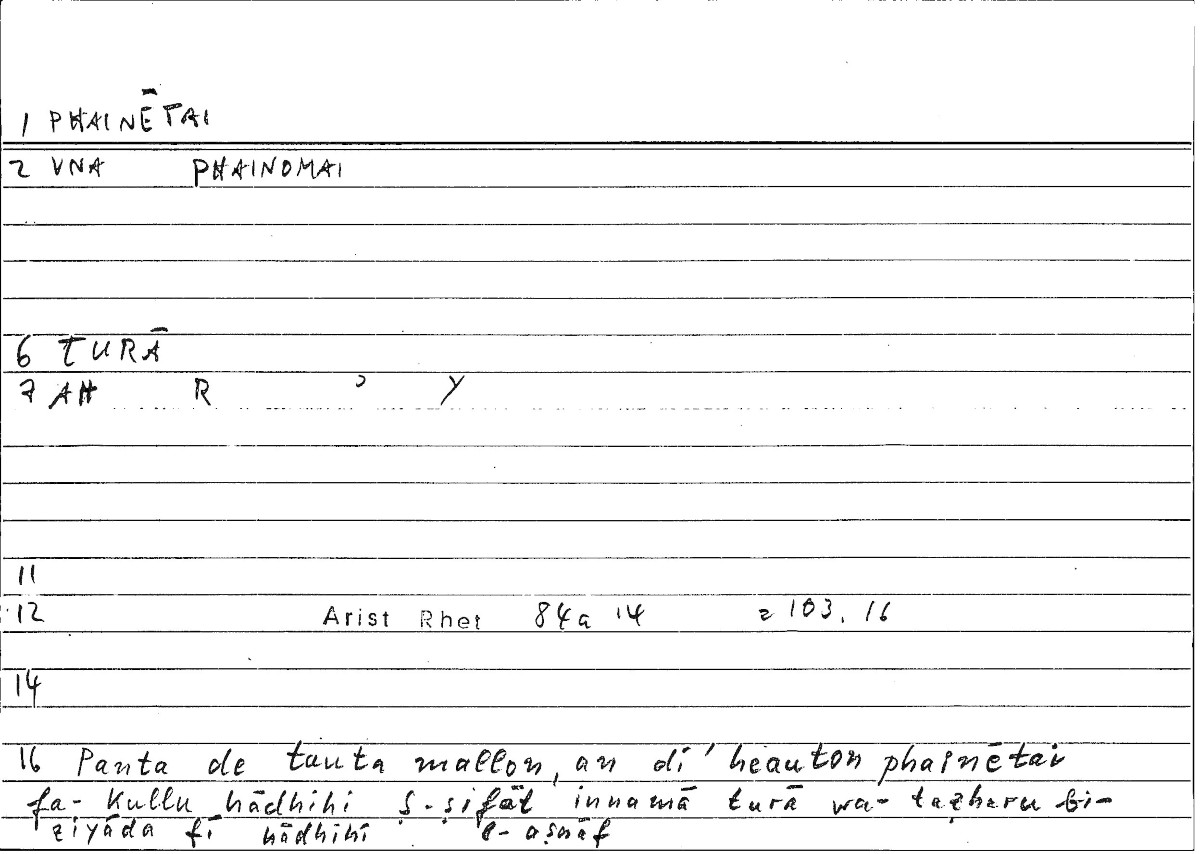 1 PHAINĒTAI
2 VNA PHAINOMAI
6 TURĀ
7 AH R ʾ Y
11
12 Arist Rhet 84a 14 = 103, 16
14
16 Panta de tauta mallon, an di' heauton phainētai
fa- kullu hādhihi ṣ-ṣifāt innamā turā wa- taẓharu bi-
ziyāda fī hādhihī l- aṣnāf